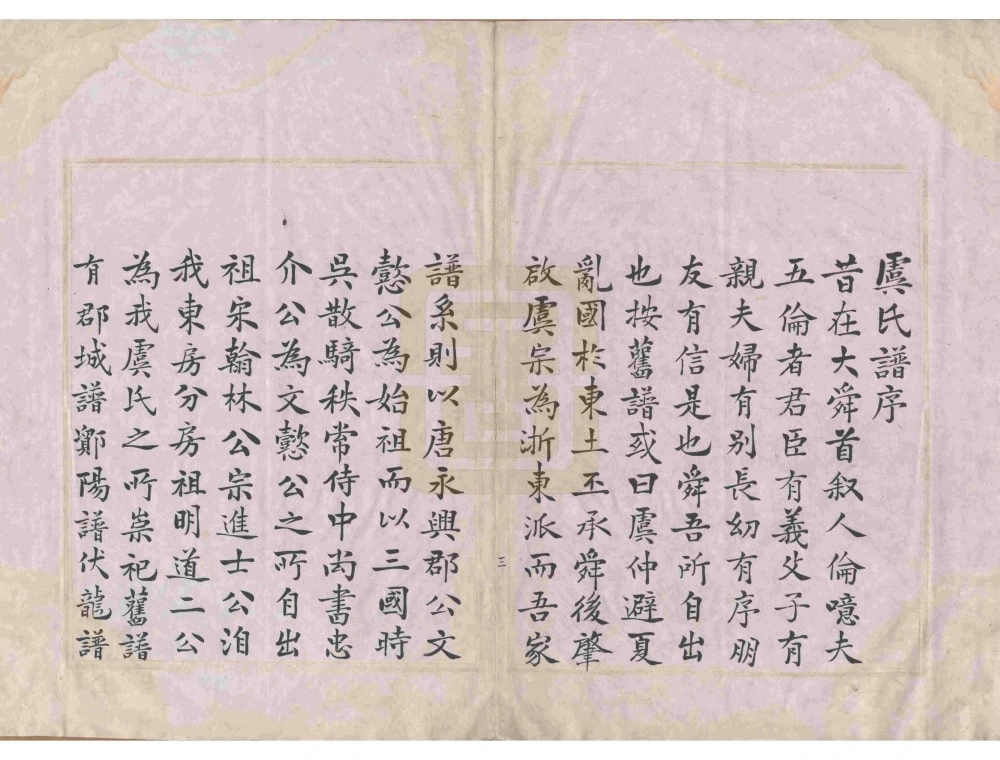 虞氏譜序
昔在大舜首叙人倫噫夫
五倫者君臣有義父子有
親夫婦有别長幼有序朋
友有信是也舜吾所自出
也按舊譜或曰虞仲避夏
亂國於東土丕承舜後肇
啟虞宗為浙東派而吾家
三
譜系則以唐永興郡公文
懿公為始祖而以三國時
吳散騎秩常侍中尚書忠
介公為文懿公之所自出
祖宋翰林公宗進士公洎
我東房分房祖明道二公
為我虞氏之所崇祀舊譜
有郡城譜鄮陽譜伏龍譜